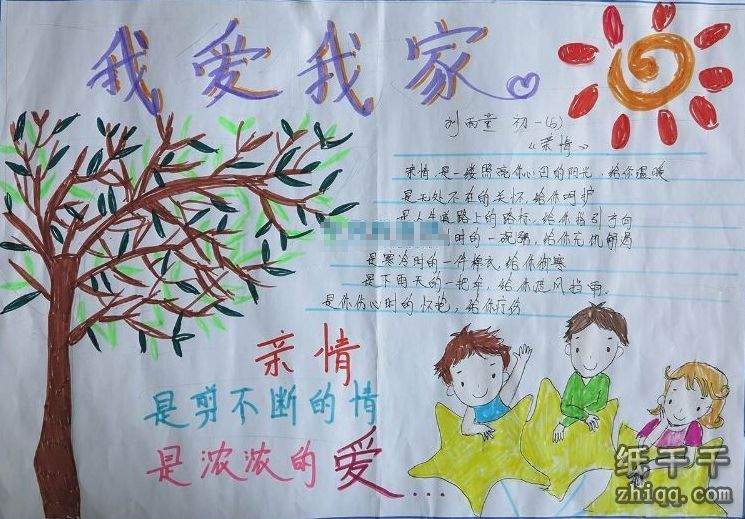 我爱我家
刘雨童 初一(6)
《亲情》
亲情,是一缕照亮你心田的阳光,给你温暖
是无处不在的关怀,给你呵护
是人生道路上的路标,给你指引方向
时的一泓粥,给你充饥解渴
是寒冷时的一件棉衣,给你御寒
是下雨天的一把伞,给你遮风挡雨
是你伤心时的怀抱,给你疗伤
亲情
是剪不断的情
是浓浓的爱...
纸千千
zhiqq.com